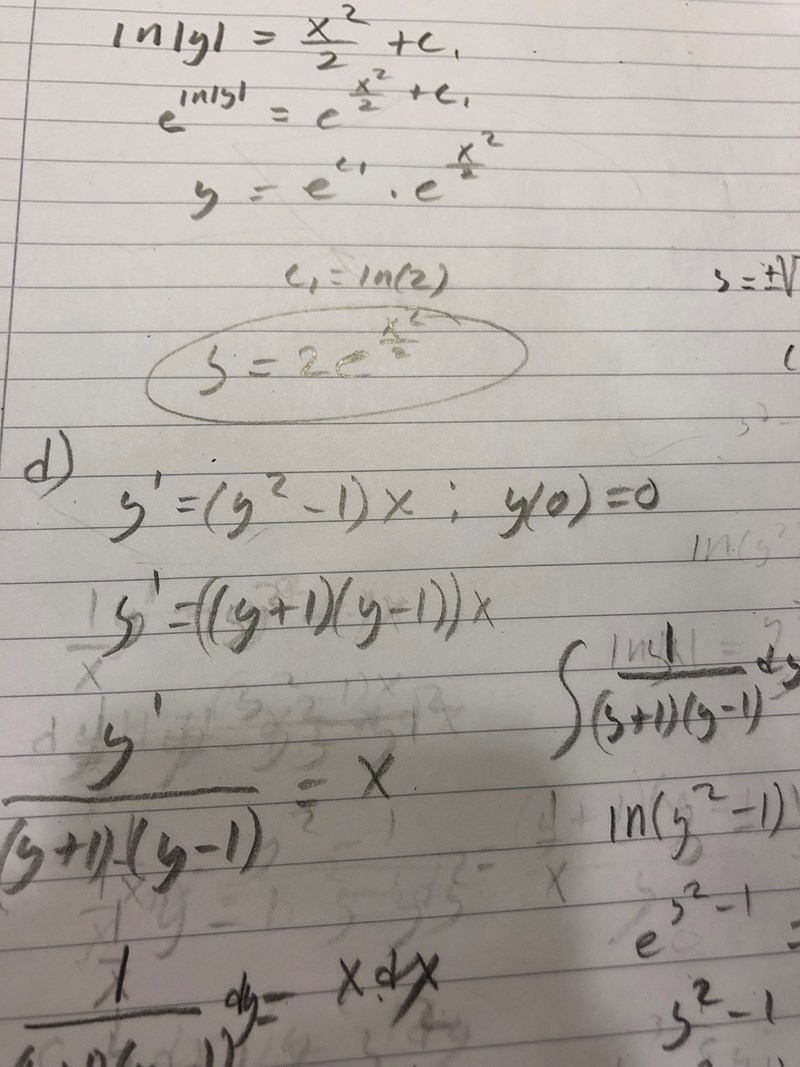 ln|y| = x²/2 + c₁
e^(ln|y|) = e^(x²/2 + c₁)
y = e^(c₁) · e^(x²/2)
c₁ = ln(2)
y = 2e^(x²/2)
y = ±√
d)
y' = (y² - 1)x ; y(0) = 0
y' = ((y+1)(y-1))x
y'/((y+1)(y-1)) = x
1/((y+1)(y-1)) dy = x dx
∫ 1/((y+1)(y-1)) dy
ln(y² - 1)
e^(y² - 1) =
y² - 1